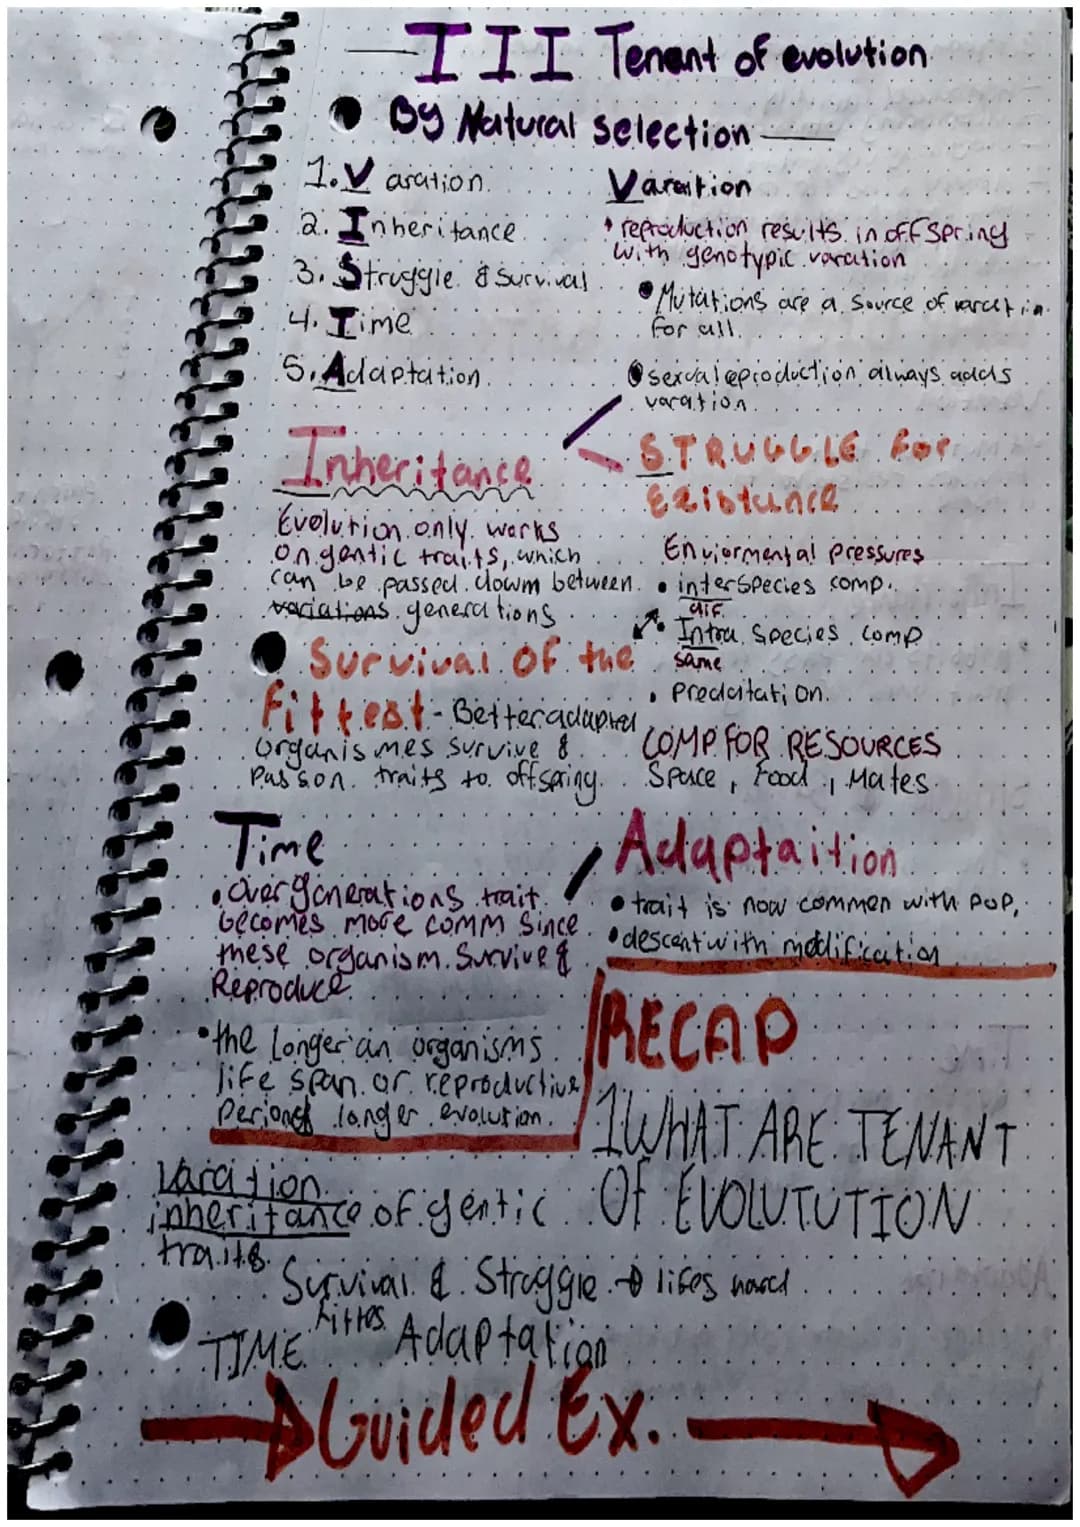 III Tenant of evolution
By Natural selection
1. Varation
2. Inheritance
3. Struggle & Survival
4. Time
5. Adaptation
Varaition
reproduction results in offspring
with genotypic varation
Mutations are a source of
for all.
sexual reproduction always adds
varation
Inheritance
Evolution only works
on gentic traits, which
can be passed dowm between
variations generations
STRUGGLE for
Existunce
Enviormental pressures
interspecies comp.
dif
Intra species comp
same
predatation.
COMP FOR RESOURCES
Space, Food, Mates
Survival of the
fittest - Better adapted
organismes survive &
pass on traits to offspring.
Time
over generations trait
becomes more comm since
these organism survive &
Reproduce
the longer an organisms
life span or reproductive
Period longer evolution.
Adaptaition
trait is now common with pop,
descent with modification
RECAP
1 WHAT ARE TENANT
OF EVOLUTUTION
Varation
inheritance of gentic
traits
Survival & Struggle → lifes hard
fittes
TIME Adaptation
Guided Ex.